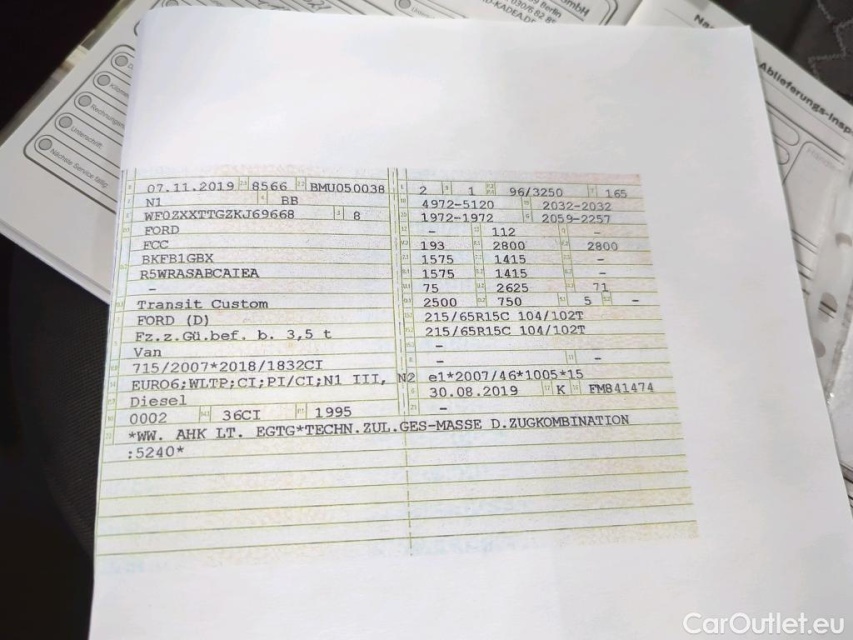 GmbH
Berlin
030/6 82 85
D-KADEA.DE
Ablieferungs-Insp
Rechnungs
Unterschrift
Nächste Service fällig
07.11.2019 8566 BMU050038 2 1 96/3250 165
N1 BB 4972-5120 2032-2032
WF0ZXXTTGZKJ69668 8 1972-1972 2059-2257
FORD - 112 -
FCC 193 2800 2800
BKFB1GBX 1575 1415 -
R5WRASABCAIEA 1575 1415 -
- 75 2625 71
Transit Custom 2500 750 5 -
FORD (D) 215/65R15C 104/102T
Fz.z.Gü.bef. b. 3,5 t 215/65R15C 104/102T
Van -
715/2007*2018/1832CI - -
EURO6;WLTP;CI;PI/CI;N1 III, N2 e1*2007/46*1005*15
Diesel 30.08.2019 K FMB41474
0002 36CI 1995 -
*WW. AHK LT. EGTG*TECHN.ZUL.GES-MASSE D.ZUGKOMBINATION
:5240*
CarOutlet.eu